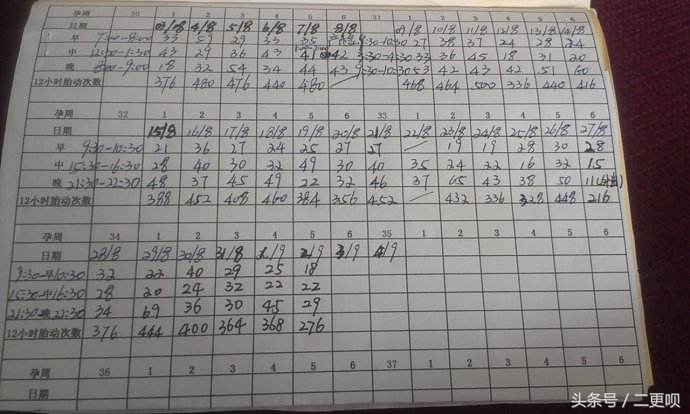 孕周 30 1 2 3 4 5 6 31 1 2 3 4 5 6
日期 4/8 5/8 6/8 7/8 8/8 10/8 11/8 12/8 13/8 14/8
早 7:00-8:00 33 59 29 33 35 9:30-10:30 27 38 37 24 28 24
中 12:00-1:30 43 29 36 43 33 36 45 18 31 20
晚 8:00-9:00 18 32 54 34 44 43 9:30-10:30 53 42 43 42 51 60
12小时胎动次数 376 480 476 440 480 468 464 500 336 440 416
孕周 32 1 2 3 4 5 6 33 1 2 3 4 5 6
日期 15/8 16/8 17/8 18/8 19/8 20/8 21/8 22/8 23/8 24/8 25/8 26/8 27/8
早 9:30-10:30 21 36 27 24 25 27 27 19 19 28 30 28
中 15:30-16:30 28 40 30 22 49 30 40 35 24 22 16 32 15
晚 21:30-22:30 48 37 45 49 22 32 46 37 65 43 38 50 11
12小时胎动次数 388 452 408 460 384 356 452 432 336 328 448 216
孕周 34 1 2 3 4 5 6 35 1 2 3 4 5 6
日期 28/8 29/8 30/8 31/8 1/9 2/9 3/9 4/9
9:30-10:30 32 22 40 29 25 18
15:30-中16:30 28 20 24 32 22 22
21:30-晚22:30 34 69 36 30 45 29
12小时胎动次数 376 444 400 364 368 276
孕周 36 1 2 3 4 5 6 37 1 2 3 4 5 6
日期
头条号 / 二更呗